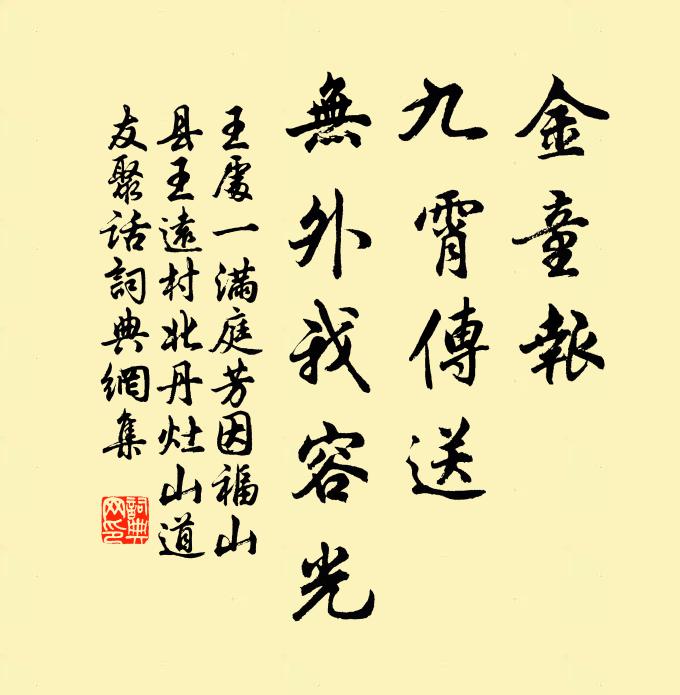 金童報
九霄傳送
無外我容光
王處一滿庭芳因福山
县王遠村北丹灶山道
友聚話詞典網集
詞典网印